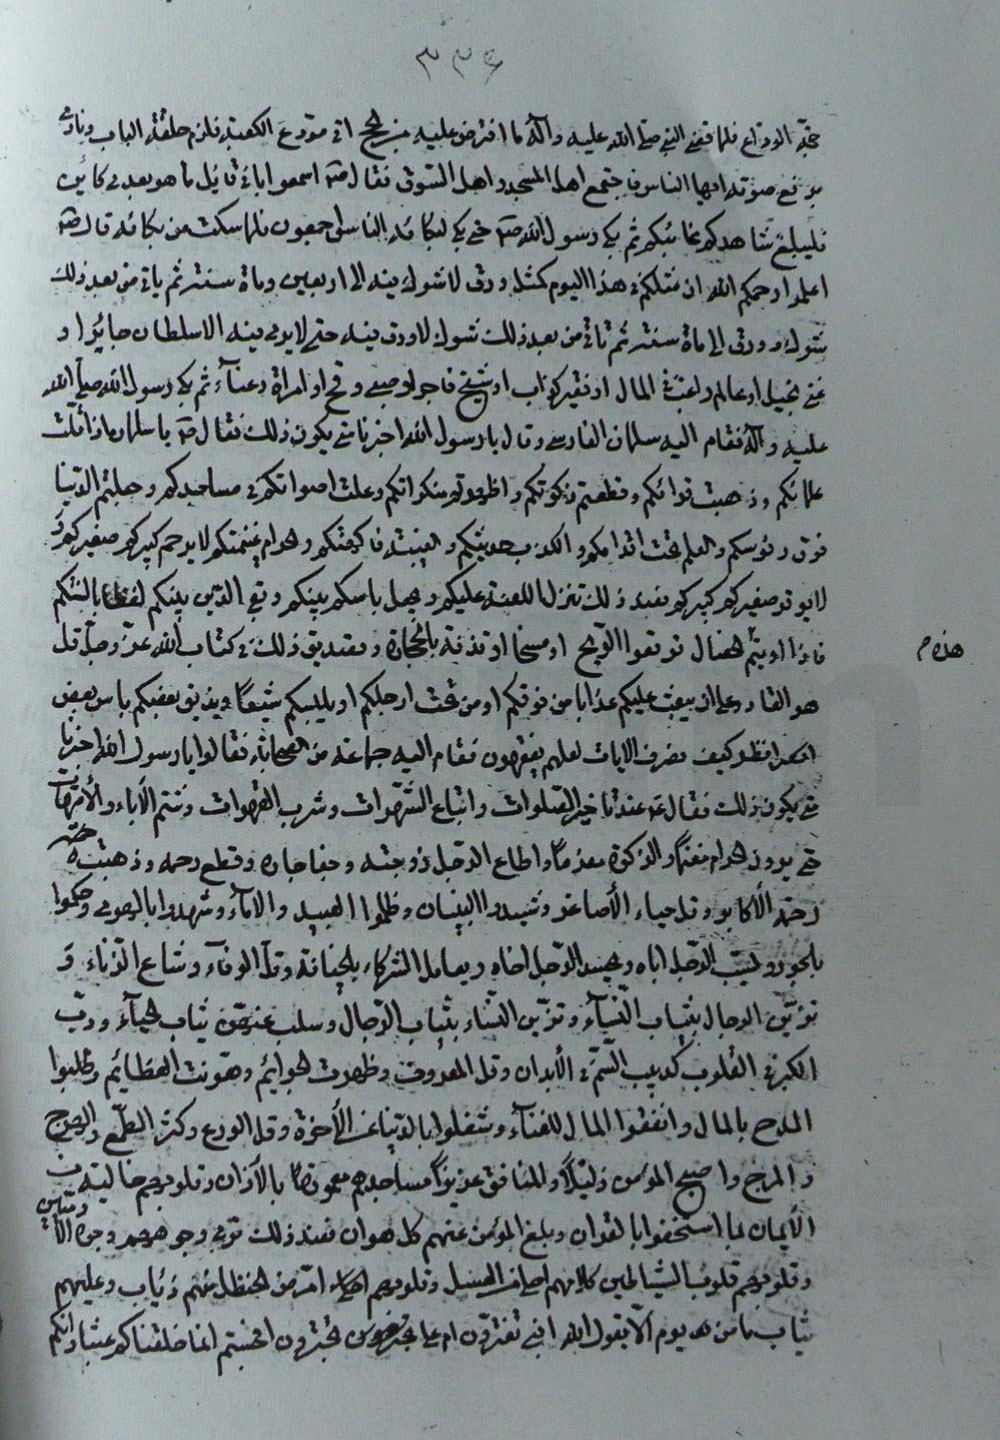 ٣٣٦
حجة الوداع فلما قضى النبي صلى الله عليه وآله ما افترض عليه من الحج اتى مودع الكعبة فلزم حلقة الباب ونادى
برفع صوته ايها الناس فاجتمع اهل المسجد واهل السوق فقال ص اسمعوا اني قائل ما هو بعدي كائن
فليبلغ شاهدكم غائبكم ثم بكى رسول الله ص حتى بكى لبكائه الناس اجمعون فلما سكت من بكائه قال ص
اعلموا رحمكم الله ان مثلكم في هذا اليوم كمثل ورق لا شوك فيه الى اربعين ومأة سنة ثم يأتي من بعد ذلك
شوك وورق الى مأة سنة ثم يأتي من بعد ذلك شوك لا ورق فيه حتى لا يرى فيه الا سلطان جائر او
غني بخيل او عالم راغب في المال او فقير كذاب او شيخ فاجر او صبي وقح او امرأة رعناء ثم بكى رسول الله صلى الله
عليه وآله فقام اليه سلمان الفارسي وقال يا رسول الله اخبرنا متى يكون ذلك فقال ص يا سلمان اذا قلت
علمائكم وذهبت قرائكم وقطعتم زكوتكم واظهرتم منكراتكم وعلت اصواتكم في مساجدكم وجعلتم الدنيا
فوق رؤسكم والعلم تحت اقدامكم والكذب حديثكم والغيبة فاكهتكم والحرام غنيمتكم لا يرحم كبيركم صغيركم و
لا يوقر صغيركم كبيركم فعند ذلك تنزل اللعنة عليكم ويجعل بأسكم بينكم وبقي الدين بينكم لفظا بالسنتكم
فاذا اوتيتم الخصال توقعوا الريح او مسخا او قذفة بالحجارة وتصديق ذلك في كتاب الله عز وجل قل
هذه م
هو القادر على ان يبعث عليكم عذابا من فوقكم او من تحت ارجلكم او يلبسكم شيعا ويذيق بعضكم بأس بعض
انظر كيف نصرف الايات لعلهم يفقهون فقام اليه جماعة من الصحابة فقالوا يا رسول الله اخبرنا
متى يكون ذلك فقال ع عند تأخير الصلوات واتباع الشهوات وشرب القهوات وشتم الآباء والأمهات
حتى يرون الحرام مغنما والزكوة مغرما واطاع الرجل زوجته وجفا جاره وقطع رحمه وذهبت
رحمة الأكابر وقل حياء الأصاغر وشيدوا البنيان وظلموا العبيد والاماء وشهدوا بالهوى وحكموا
بالجور ويسب الرجل اباه ويحسد الرجل اخاه ويعامل الشركاء بالخيانة وقل الوفاء وشاع الزناء و
تزين الرجال بثياب النساء وتزين النساء بثياب الرجال وسلب عنهن ثياب الحياء ودب
الكبر في القلوب كدبيب السم في الأبدان وقل المعروف وظهرت الجرائم وهونت العظائم وطلبوا
المدح بالمال وانفقوا المال للغناء وشغلوا بالدنيا عن الأخرة وقل الورع وكثر الطمع والهرج
والمرج واصبح المؤمن ذليلا والمنافق عزيزا مساجدهم معمورة بالأذان وقلوبهم خالية من
الأيمان بما استخفوا بالقران وبلغ المؤمن عنهم كل هوان فعند ذلك ترى وجوههم وجوه الآدميين
وقلوبهم قلوب الشياطين كلامهم احلى من العسل وقلوبهم امر من الحنظل فهم ذئاب وعليهم
ثياب ما من يوم الا يقول الله افبي تغترون ام علي تجترؤن افحسبتم انما خلقناكم عبثا وانكم